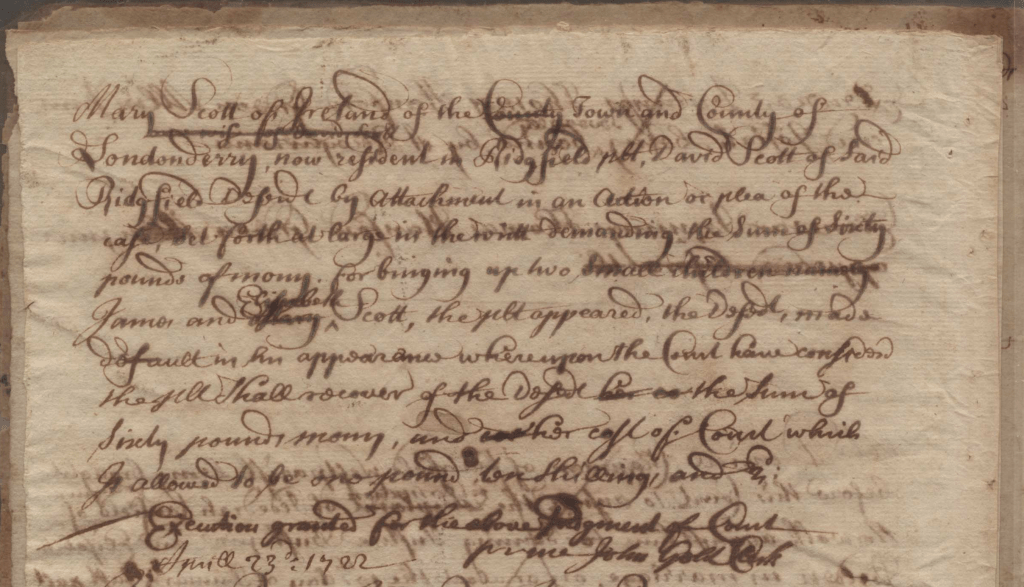 Mary Scott of Ireland of the County Town and County of
Londonderry, now resident in Ridgfield plt, David Scott of Said
Ridgfield Defendt by Attachment in an Action or plea of the
case, Set forth at large in the writt demanding the Sum of Sixty
pounds of mony. for bringing up two small children namely
Elizabeth
James and Scott, the plt appeared, the Defendt, made
default in his appearance whereupon the Court have considerd
the plt Shall recover of the Defendt the Sum of
Sixty pounds mony, and her cost of Court which
Is allowed to be one pound ten shillings, and
Execution granted for the above Judgment of Court
Aprill 23d: 1722 pr me John Clerk